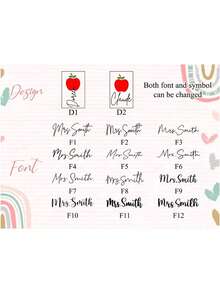 Design
Love
Claude
D1 D2
Both font and symbol
can be changed
Font
Mrs Smith Mrs. Smith Mrs Smith
F1 F2 F3
Mrs Smith Mrs Smith Mrs. Smith
F4 F5 F6
Mrs Smith Mrs Smith Mrs. Smith
F7 F8 F9
Mrs. Smith Mrs Smith Mrs. Smith
F10 F11 F12